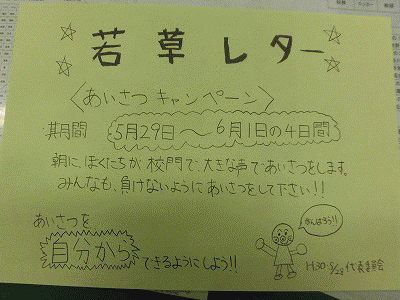 ☆ 若草レター ☆
〈あいさつキャンペーン〉
期間 5月29日〜6月1日の4日間
朝に、ぼくたちが校門で、大きな声であいさつをします。
みんなも、負けないようにあいさつをして下さい!!
あいさつを
自分から
できるようにしよう!!
がんばろう!!
H30 5/29 代表委員会